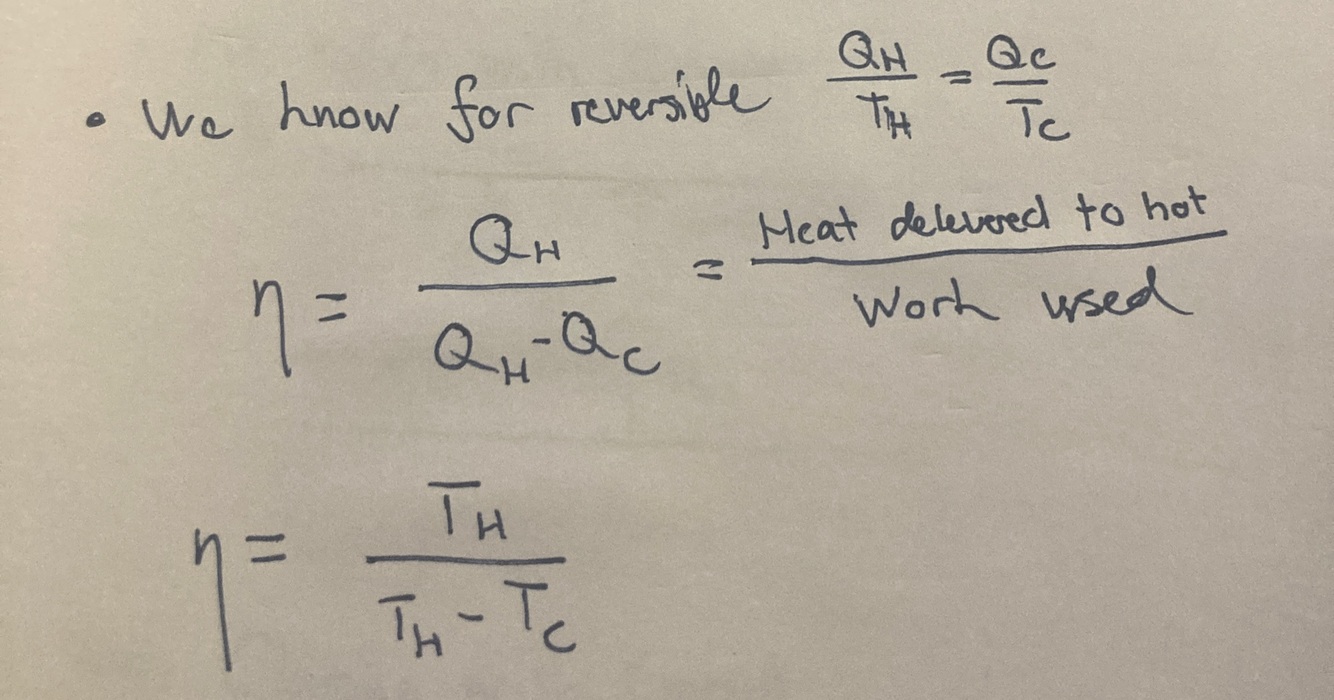 • We know for reversible Q_H/T_H = Q_C/T_C
η = Q_H/(Q_H - Q_C) = Heat delevered to hot/Work used
η = T_H/(T_H - T_C)